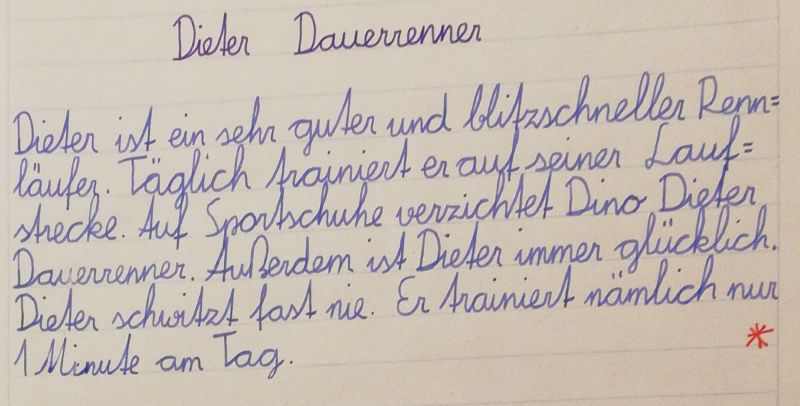 Dieter Dauerrenner
Dieter ist ein sehr guter und blitzschneller Renn=
läufer. Täglich trainiert er auf seiner Lauf=
strecke. Auf Sportschuhe verzichtet Dino Dieter
Dauerrenner. Außerdem ist Dieter immer glücklich.
Dieter schwitzt fast nie. Er trainiert nämlich nur
1 Minute am Tag.